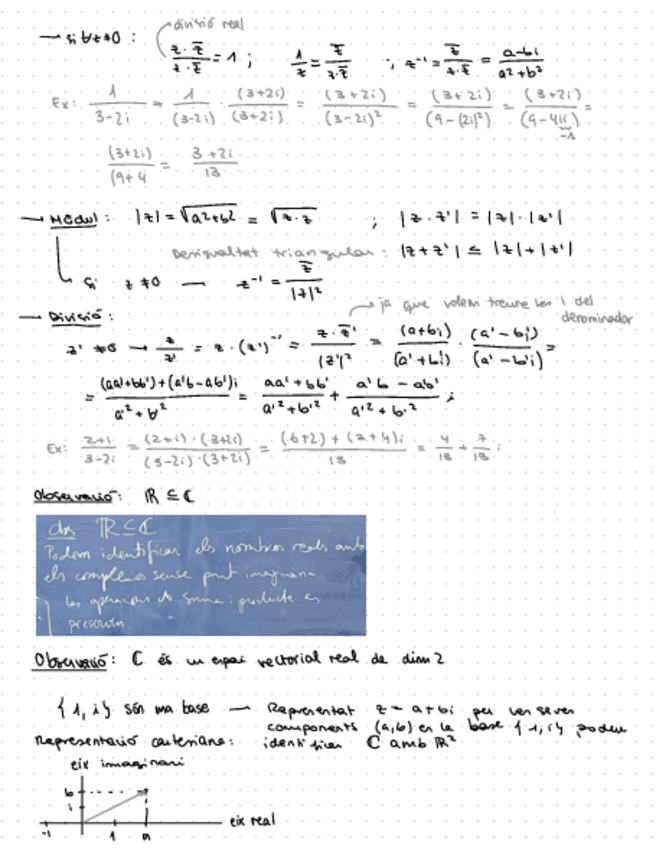 → si z≠0 : divisió real
z·z̄ / z·z̄ = 1 ; 1/z = z̄ / z·z̄ ; z⁻¹ = z̄ / z·z̄ = a-bi / a²+b²
Ex: 1 / 3-2i = 1 / (3-2i) · (3+2i) / (3+2i) = (3+2i) / (3-2i)² = (3+2i) / (9-(2i)²) = (3+2i) / (9-4ii) =
-1
(3+2i) / (9+4 = 3+2i / 13
→ Mòdul : |z| = √a²+b² = √z·z ; |z·z'| = |z|·|z'|
Desigualtat triangular : |z+z'| ≤ |z|+|z'|
Si z≠0 — z⁻¹ = z̄ / |z|²
→ Divisió : ja que volem treure les i del
denominador
z'≠0 → z / z' = z·(z')⁻¹ = z·z̄' / |z'|² = (a+bi) / (a'+b'i) · (a'-b'i) / (a'-b'i) =
= (aa'+bb')+(a'b-ab')i / a'²+b'² = aa'+bb' / a'²+b'² + a'b-ab' / a'²+b'² i
Ex: 2+i / 3-2i = (2+i)·(3+2i) / (3-2i)·(3+2i) = (6+2)+(3+4)i / 13 = 4 / 13 + 7 / 13 i
Observació : ℝ ⊆ ℂ
ℝ ⊆ ℂ
Podem identificar els nombres reals amb
els complexos sense part imaginària
les operacions de suma i producte es
preserven.
Observació : ℂ és un espai vectorial real de dim 2
{1, i} són una base — Representat z = a+bi per les seves
components (a,b) en la base {1, i} podem
Representació cartesiana : identificar ℂ amb ℝ²
eix imaginari
b
i
eix real
-1 1 a